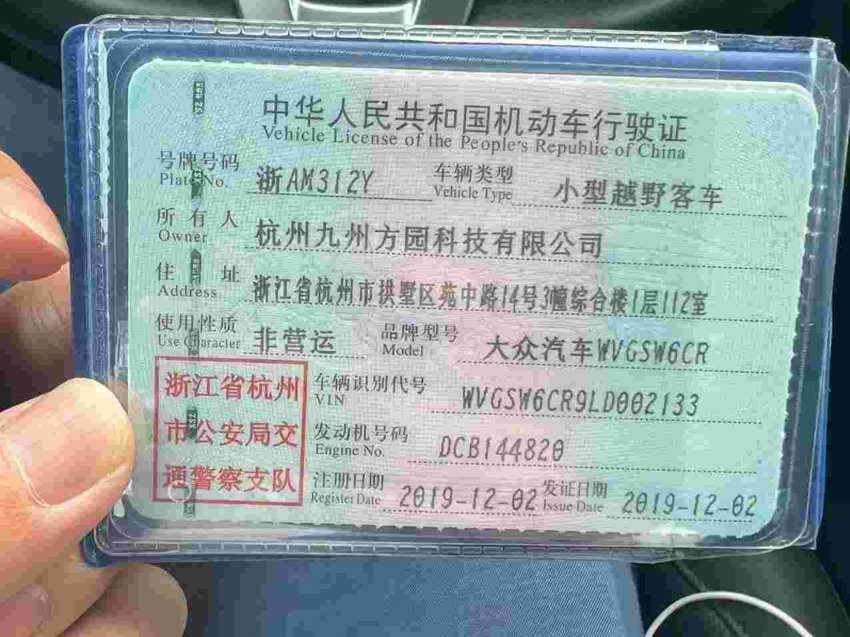 中华人民共和国机动车行驶证
Vehicle License of the People's Republic of China
号牌号码 浙AM312Y 车辆类型 小型越野客车
Plate No. Vehicle Type
所有人 杭州九州方园科技有限公司
Owner
住址 浙江省杭州市拱墅区苑中路14号3幢综合楼1层112室
Address
使用性质 非营运 品牌型号 大众汽车WVGSW6CR
Use Character Model
浙江省杭州
市公安局交
通警察支队
车辆识别代号 WVGSW6CR9LD002133
VIN
发动机号码 DCB144820
Engine No.
注册日期 2019-12-02 发证日期 2019-12-02
Register Date Issue Date